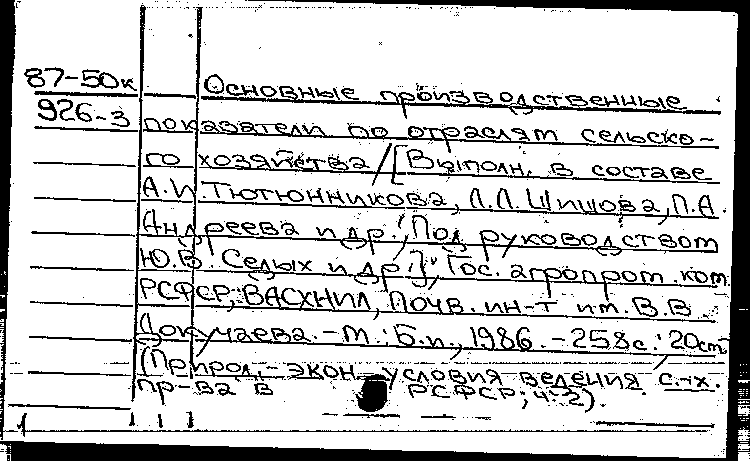 87-50к Основные производственные
926-3 показатели по отраслям сельско-
го хозяйства / [Выполн. в составе
А.И. Тютюнникова, Л.Л. Шишова, П.А.
Андреева и др.; Под руководством
Ю.В. Седых и др.]; Гос. агропром. ком.
РСФСР, ВАСХНИЛ, Почв. ин-т им. В.В.
Докучаева. - М.: Б.и., 1986. - 258с.; 20см
(Природ.-экон. условия ведения с.-х.
пр-ва в РСФСР; ч. 2).